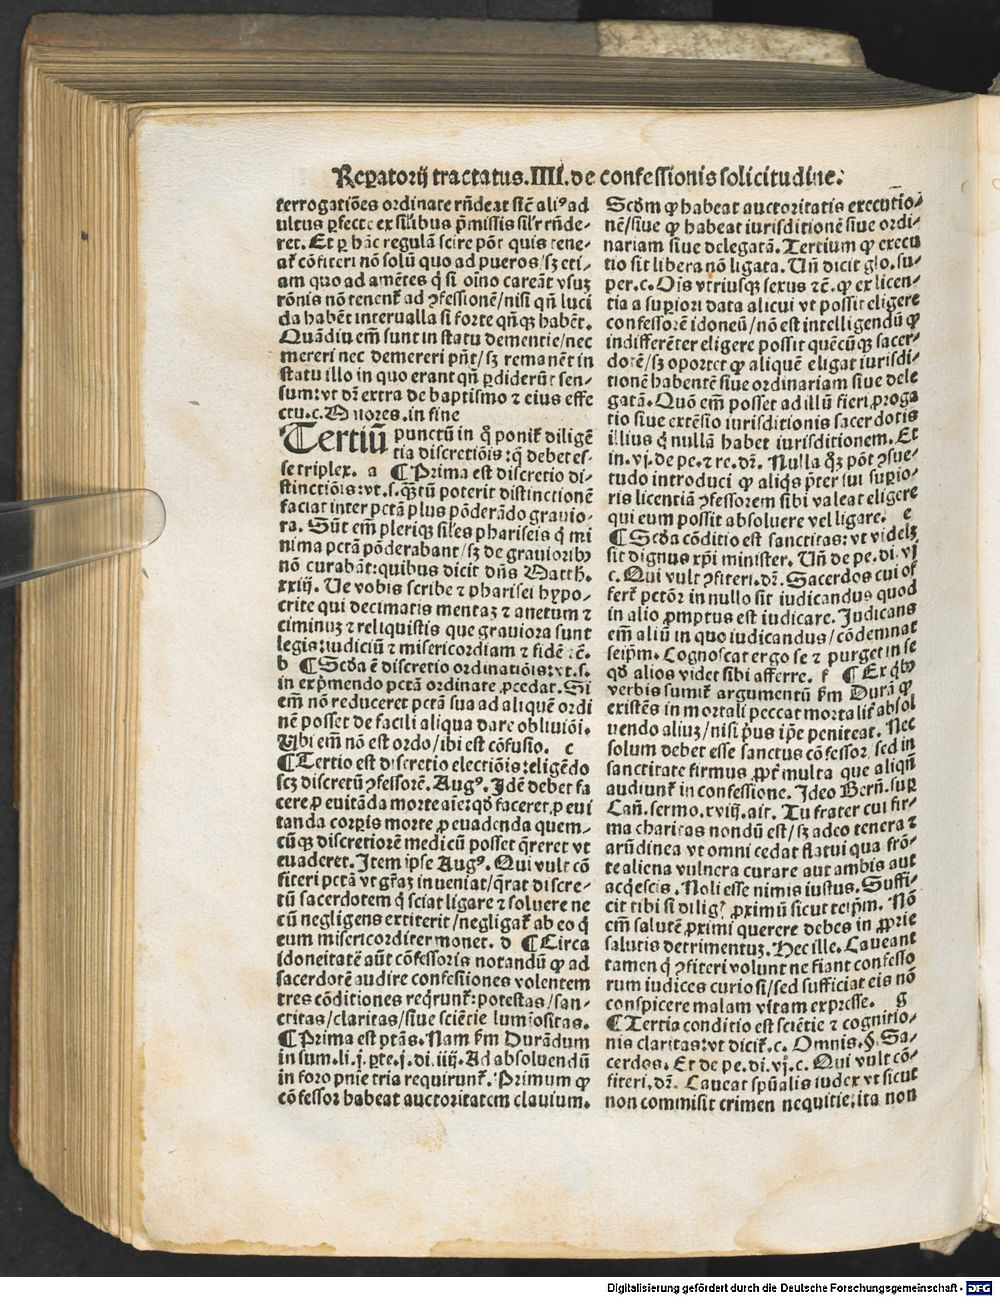 Repatorij tractatus.IIII.de confessionis solicitudine.
terrogatiões ordinate rñdeat siẽ aliꝰ ad
ultus ꝑfecte ex silibus p̃missis sil'r rñde-
ret. Et ꝑ hãc regulã scire põt quis tene-
at̃ cõfiteri nõ solũ quo ad pueros/sꝫ eti-
am quo ad amẽtes q̃ si oĩno careãt vsuꝫ
rõnis nõ tenent̃ ad ꝯfessionẽ/nisi qñ luci
da habẽt interualla si forte qñqꝫ habẽt.
Quãdiu em̃ sunt in statu dementie/nec
mereri nec demereri pñt/sꝫ remanẽt in
statu illo in quo erant qñ ꝑdiderũt sen-
sum:vt dr̃ extra de baptismo ⁊ eius effe
ctu.c. Maiores. in fine
Tertiũ punctũ in q̃ ponit̃ diligẽ
tia discretiõis:q̃ debet es-
se triplex. a ¶ Prima est discretio di-
stinctiõis:vt.s.qꝫtũ poterit distinctionẽ
faciat inter pctã plus põderãdo grauio-
ra. Sũt em̃ pleriqꝫ siles phariseis q̃ mi
nima pctã põderabant/sꝫ de grauioribꝰ
nõ curabãt:quibus dicit dñs Matth.
xxiij. Ue vobis scribe ⁊ pharisei hypo-
crite qui decimatis mentaꝫ ⁊ anetum ⁊
ciminuꝫ ⁊ reliquistis que grauiora sunt
legis:iudiciũ ⁊ misericordiam ⁊ fidẽ ⁊c̃.
b ¶ Scđa ẽ discretio ordinatiõis:vt.s.
in exp̃mendo pctã ordinate ꝓcedat. Si
em̃ nõ reduceret pctã sua ad aliquẽ ordi
nẽ posset de facili aliqua dare obliuiõi.
Ubi em̃ nõ est ordo/ibi est cõfusio. c
¶ Tertio est discretio electiõis:eligẽdo
scꝫ discretũ ꝯfessorẽ. Augꝰ. Idẽ debet fa
cere ꝓ euitãda morte aĩe:qđ faceret ꝓ eui
tanda corꝑis morte ꝓ euadenda quem-
cũqꝫ discretiorẽ medicũ posset q̃reret vt
euaderet. Item ipse Augꝰ. Qui vult cõ
fiteri pctã vt gr̃aꝫ inueniat/q̃rat discre-
tũ sacerdotem q̃ sciat ligare ⁊ soluere ne
cũ negligens extiterit/negligat̃ ab eo q̃
eum misericorditer monet. d ¶ Circa
idoneitatẽ aũt cõfessoris notandũ ꝙ ad
sacerdotẽ audire confessiones volentem
tres cõditiones req̃runt̃:potestas/san-
ctitas/claritas/siue sciẽtie luminositas.
¶ Prima est ptãs. Nam ẜm Durãdum
in sum.li.j.ꝑte.j.di.iiij. Ad absoluendũ
in foro pñie tria requirunt̃. Primum ꝙ
cõfessor habeat auctoritatem clauium.
Scđm ꝙ habeat auctoritatis executio-
nẽ/siue ꝙ habeat iurisditionẽ siue ordi-
nariam siue delegatã. Tertium ꝙ execu
tio sit libera nõ ligata. Uñ dicit glo.su-
per.c. Oĩs vtriusqꝫ sexus ⁊c̃. ꝙ ex licen-
tia a supiori data alicui vt possit eligere
confessorẽ idoneũ/nõ est intelligendũ ꝙ
indifferẽter eligere possit quẽcũqꝫ sacer-
dotẽ/sꝫ oportet ꝙ aliquẽ eligat iurisdi-
tionẽ habentẽ siue ordinariam siue dele
gatã. Quõ em̃ posset ad illũ fieri ꝓroga
tio siue extẽsio iurisditionis sacerdotis
illius q̃ nullã habet iurisditionem. Et
in.vj.de pe.⁊ re.dr̃. Nulla q̃ꝫ põt ꝯsue-
tudo introduci ꝙ aliq̃s p̃ter sui supio-
ris licentiã ꝯfessorem sibi valeat eligere
qui eum possit absoluere vel ligare. e
¶ Scđa cõditio est sanctitas:vt videlꝫ
sit dignus xp̃i minister. Uñ de pe.di.vj
c. Qui vult ꝯfiteri.dr̃. Sacerdos cui of
fert̃ pctõꝛ in nullo sit iudicandus quod
in alio ꝓmptus est iudicare. Judicans
em̃ aliũ in quo iudicandus/cõdemnat
seip̃m. Cognoscat ergo se ⁊ purget in se
qđ alios videt sibi afferre. f ¶ Ex qͥbꝰ
verbis sumit̃ argumentũ ẜm Durã ꝙ
existẽs in mortali peccat mortalit̃ absol
uendo aliuꝫ/nisi p̃us ip̃e peniteat. Nec
solum debet esse sanctus cõfessor sed in
sanctitate firmus ꝓpt̃ multa que aliqñ
audiunt̃ in confessione. Ideo Berñ.suꝑ
Cañ.sermo.xviij.ait. Tu frater cui fir-
ma charitas nondũ est/sꝫ adeo tenera ⁊
arũdinea vt omni cedat flatui qua frõ-
te aliena vulnera curare aut ambis aut
acq̃escis. Noli esse nimis iustus. Suffi-
cit tibi si dilig̃ꝭ ꝓximũ sicut teip̃m. Nõ
em̃ salutẽ ꝓximi querere debes in ꝓprie
salutis detrimentuꝫ. Hec ille. Caueant
tamen q̃ ꝯfiteri volunt ne fiant confesso
rum iudices curiosi/sed sufficiat eis nõ
conspicere malam vitam expresse. g
¶ Tertia conditio est sciẽtie ⁊ cognitio-
nis claritas:vt dicit̃.c. Omnis.§. Sa-
cerdos. Et de pe.di.vj.c. Qui vult cõ-
fiteri.dr̃. Caueat spũalis iudex vt sicut
non commisit crimen nequitie:ita non
Digitalisierung gefördert durch die Deutsche Forschungsgemeinschaft - DFG